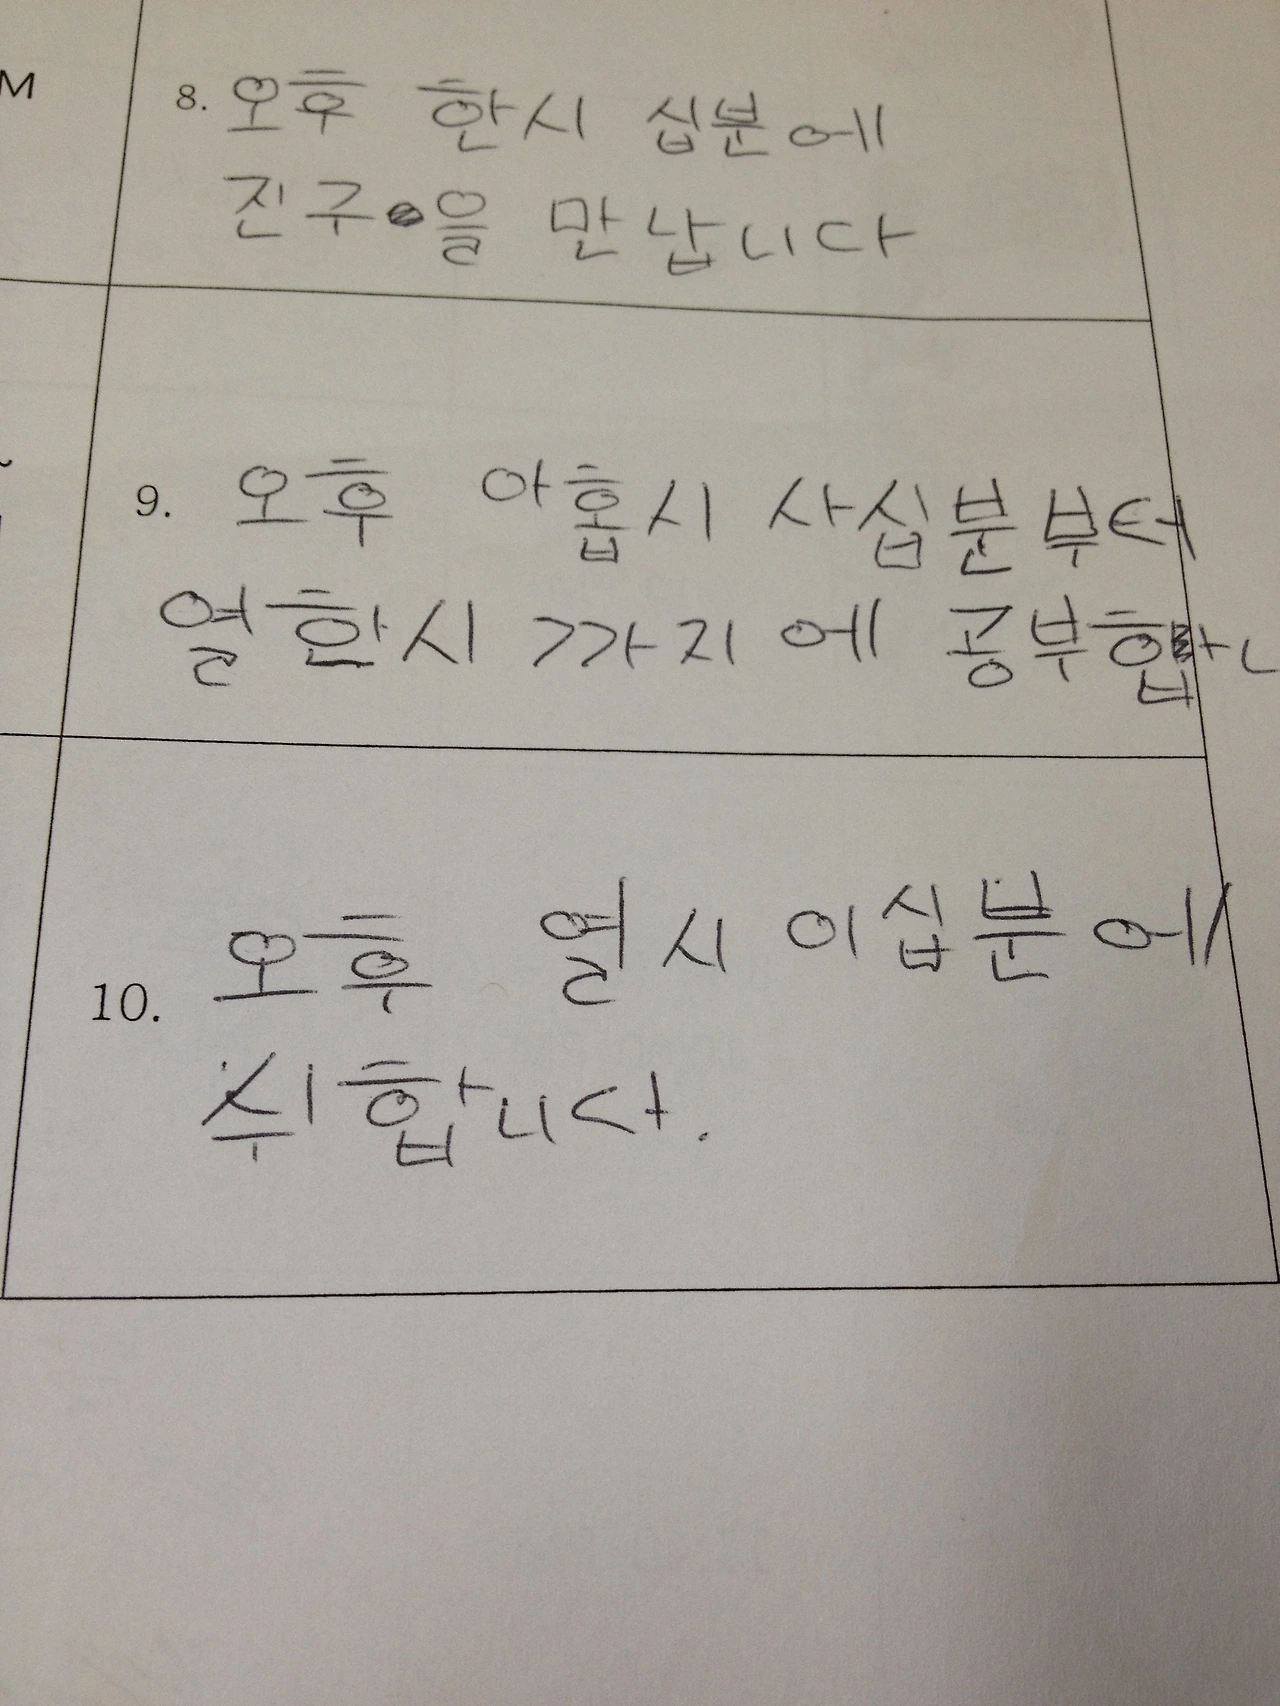 M
8. 오후 한시 십분에
진구을 만납니다
9. 오후 아홉시 사십분부터
열한시 까지에 공부합니
10. 오후 열시 이십분에
쉬합니다.